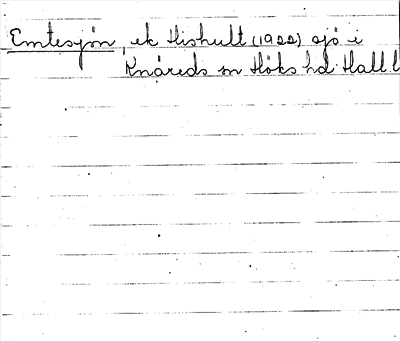 Emtesjön, ek Hishult (1922) sjö i
Knäreds sn Höks hd Hall. l